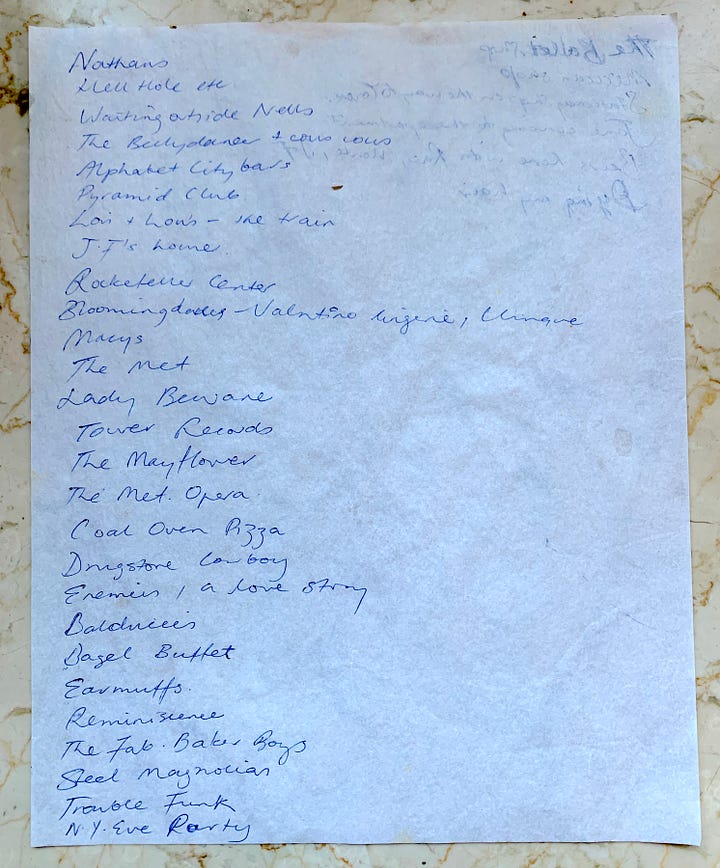 Nathans
Hell Hole etc
Waiting outside Nells
The Bellydancer + cous cous
Alphabet City bars
Pyramid Club
Lois + Lou's - the train
J.F's home.
Rockefeller Center
Bloomingdales - Valentino lingerie, Unique
Macys
The Met
Lady Beware
Tower Records
The Mayflower
The Met. Opera.
Coal Oven Pizza
Drugstore Cowboy
Enemies, a love story
Balduccis
Bagel Buffet
Earmuffs.
Reminiscence
The Fab. Baker Boys
Steel Magnolias
Trouble Funk
N.Y. Eve Party
The Ballet Shop
American
on the way to
the apartment
Dying my hair